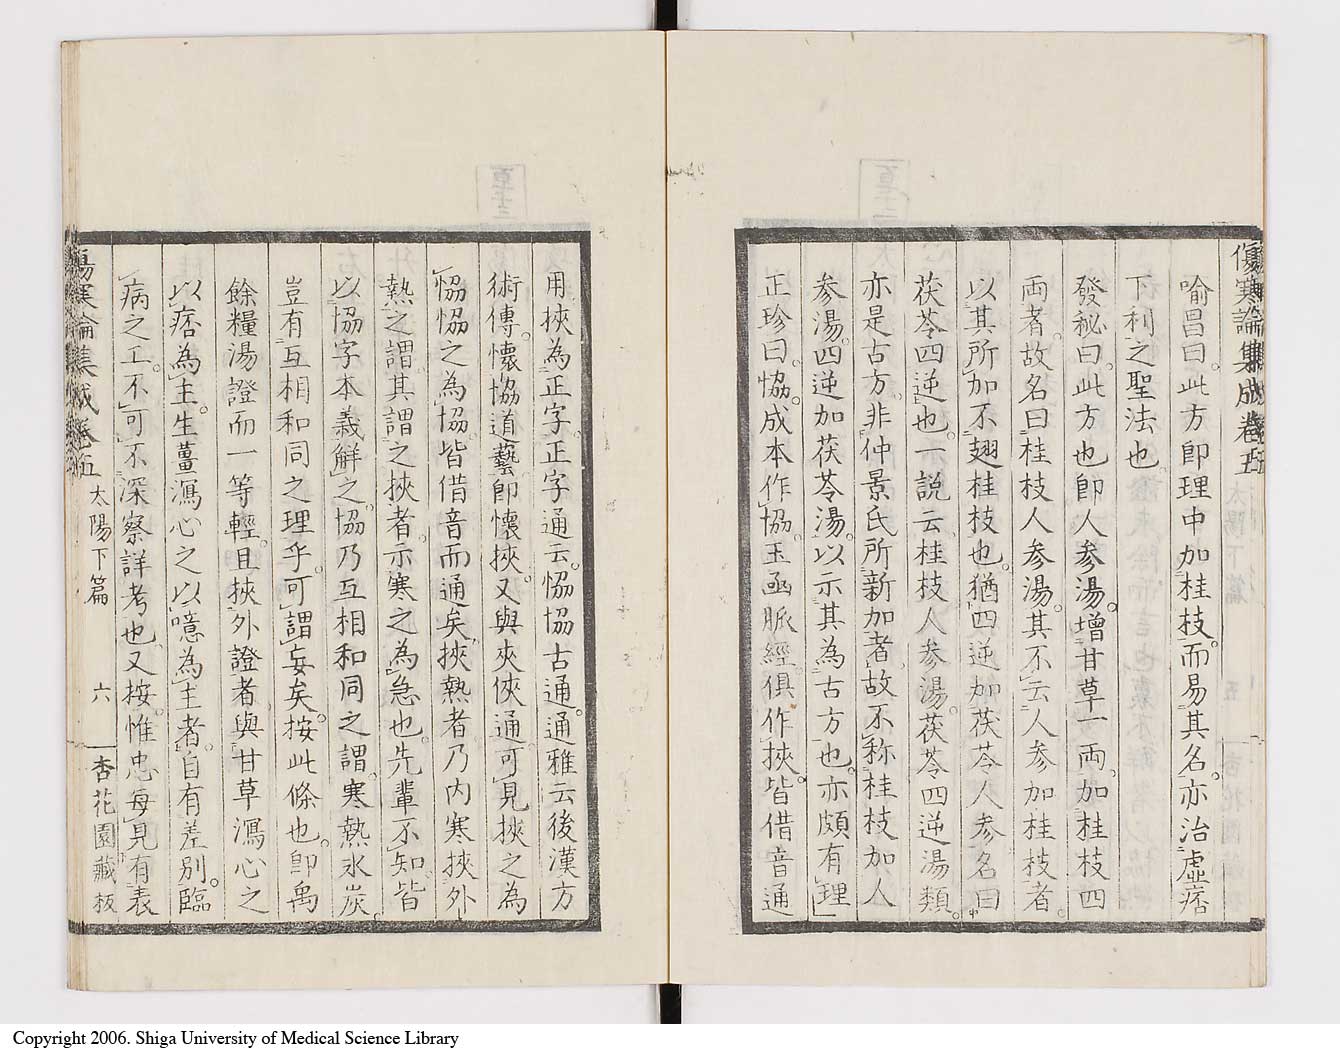 傷寒論集成卷五
喻昌曰。此方即理中加桂枝。而易其名。亦治虛痞
下利之聖法也。
發秘曰。此方也即人參湯。增甘草一兩。加桂枝四
両者。故名曰桂枝人參湯。其不云人參加桂枝者。
以其所加不翅桂枝也。猶四逆加茯苓人參名曰
茯苓四逆也。一說云。桂枝人參湯。茯苓四逆湯類。
亦是古方。非仲景氏所新加者。故不称桂枝加人
參湯。四逆加茯苓湯。以示其為古方也。亦頗有理
正珍曰。恊成本作協。玉函脈經。俱作挾。皆借音通
用挾為正字。正字通云。恊協古通。通雅云後漢方
術傳。懷協道藝。即懷挾。又與夾俠通。可見挾之為
恊恊之為協。皆借音而通矣。挾熱者乃内寒挾外
熱之謂。其謂之挾者。示寒之為急也。先輩不知。皆
以協字本義解之。協乃互相和同之謂。寒熱氷炭。
豈有互相和同之理乎。可謂妄矣。按此條也。即禹
餘糧湯證而一等輕。且挾外證者。與甘草瀉心之
以痞為主。生薑瀉心之以噫為主者。自有差別。臨
病之工。不可不深察詳考也。又按惟忠每見有表
傷寒論集成卷五 太陽下篇 六 杏花園藏板
Copyright 2006. Shiga University of Medical Science Library